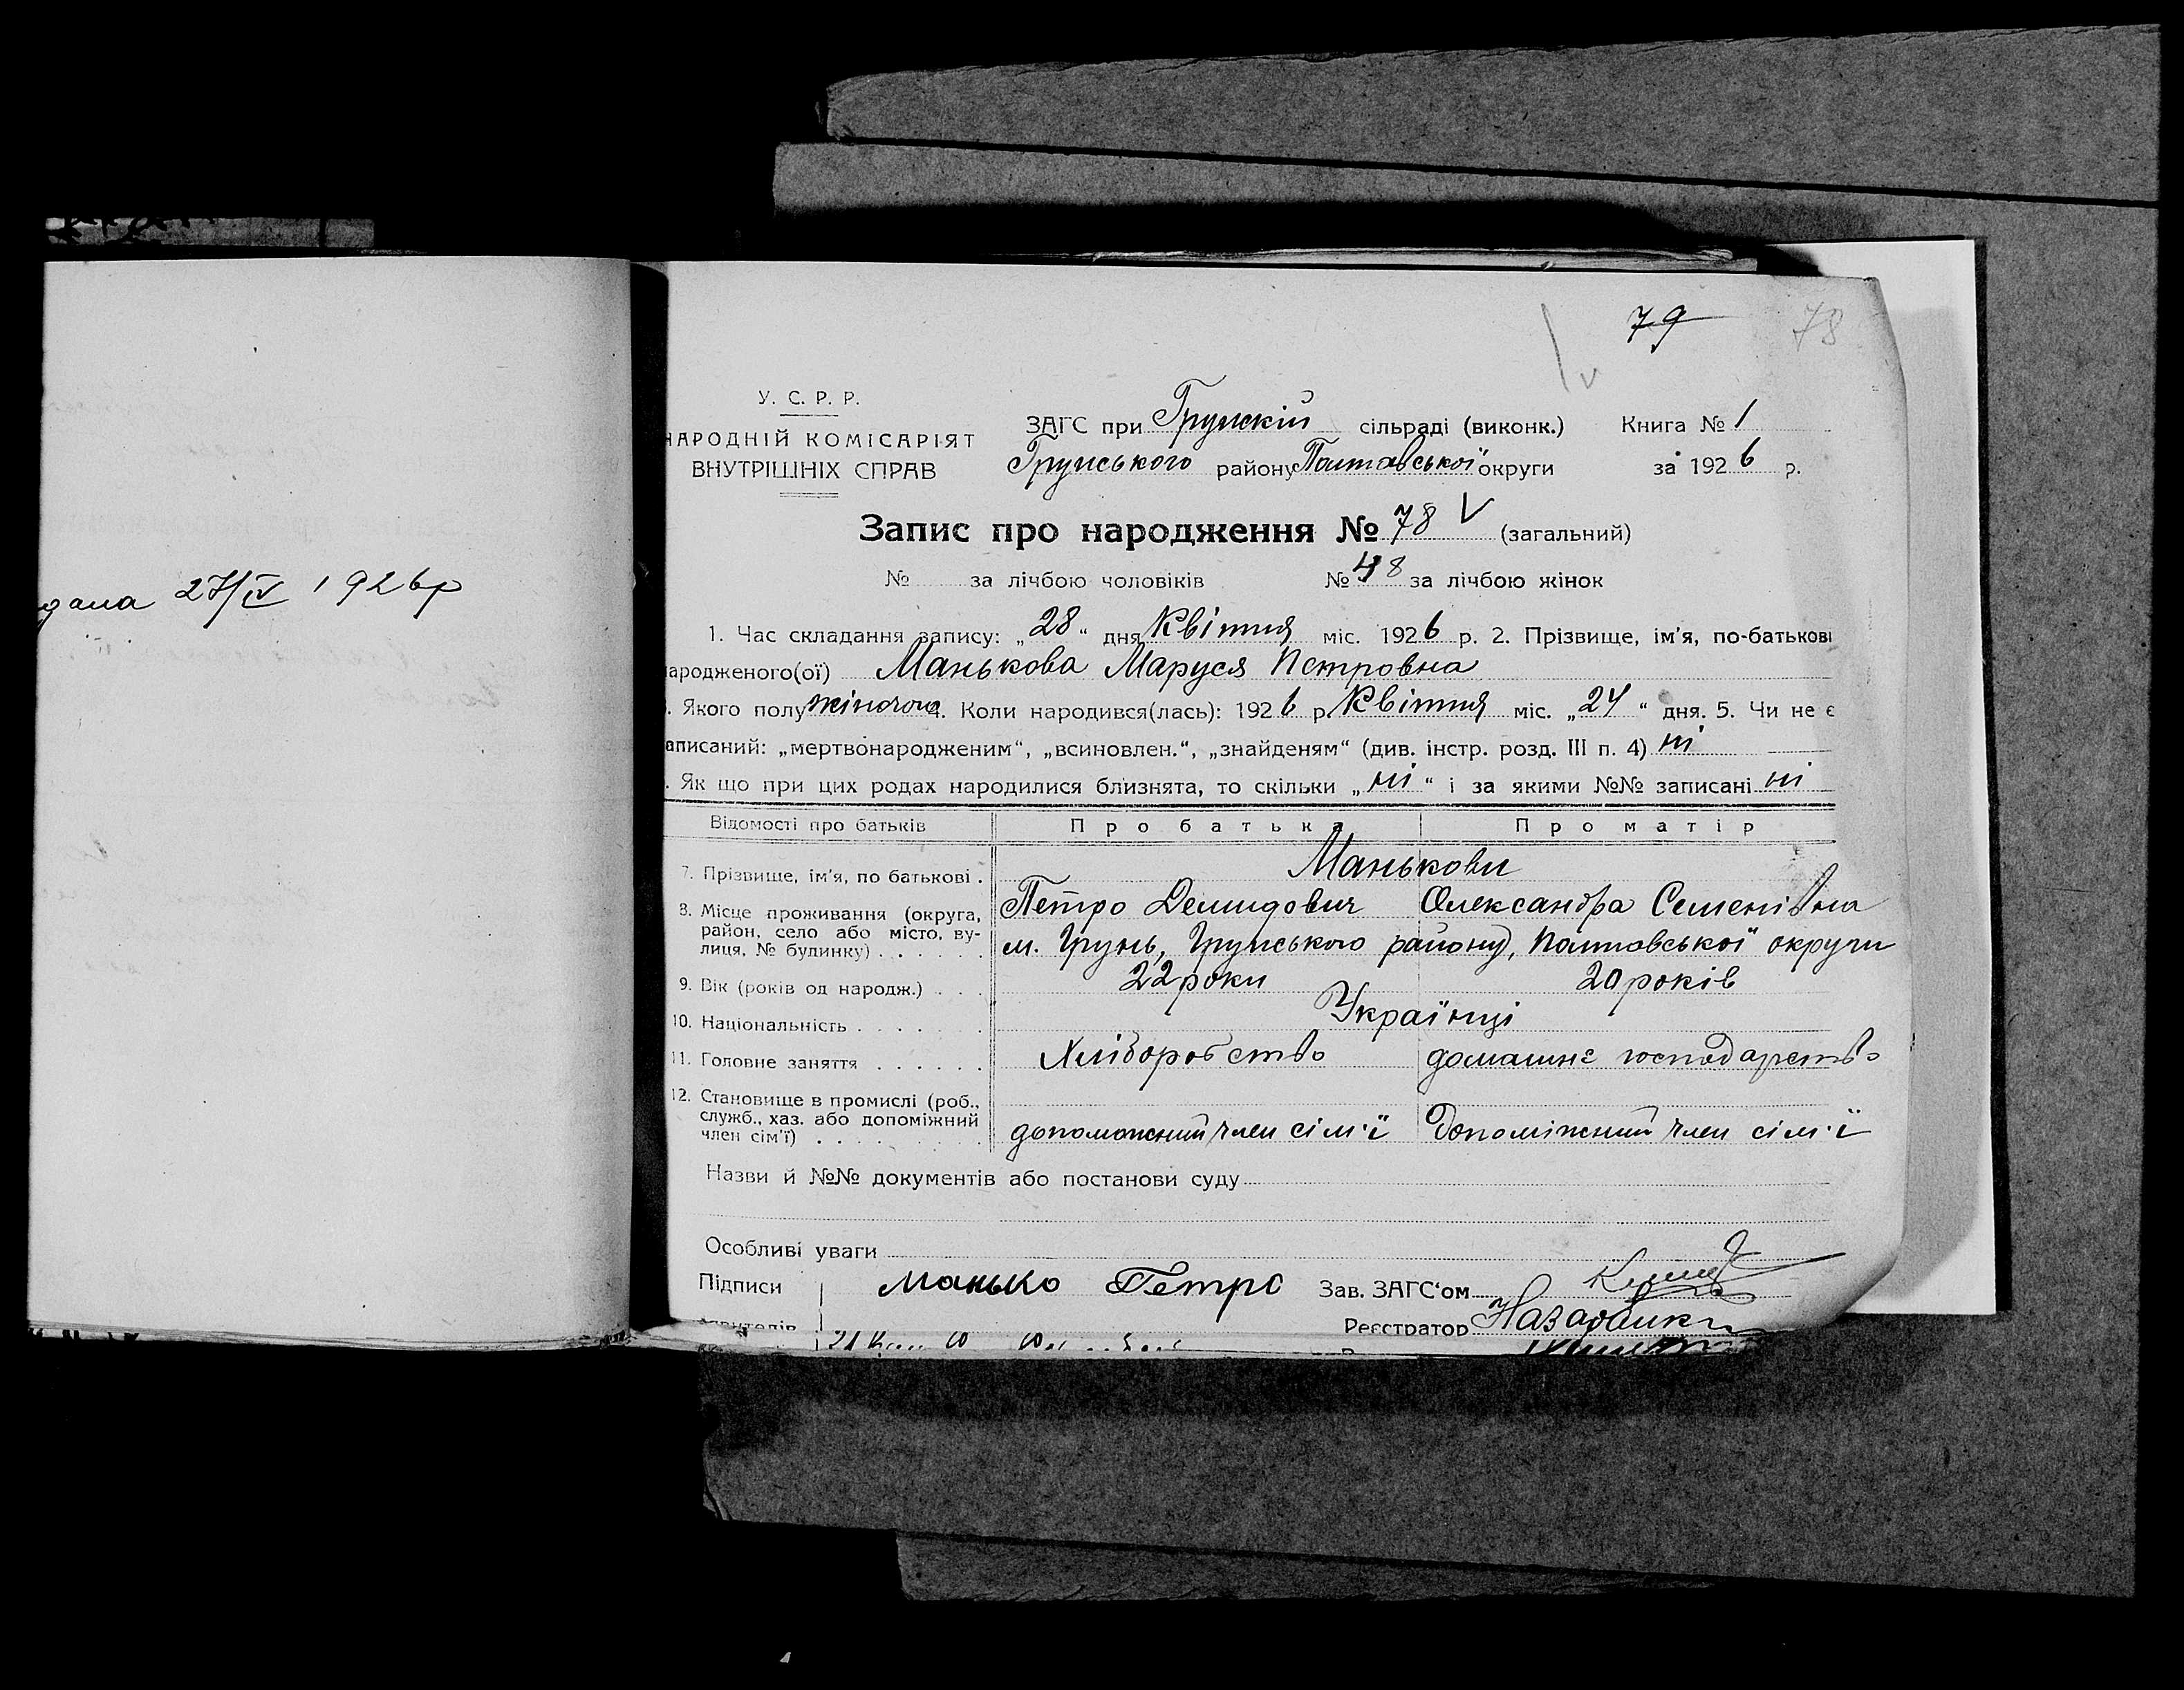 27/IV 1926р
79
78
У. С. Р. Р.
НАРОДНІЙ КОМІСАРІЯТ
ВНУТРІШНІХ СПРАВ
ЗАГС при Грунскій сільраді (виконк.) Книга № 1
Грунського району Полтавської округи за 1926 р.
Запис про народження № 78 V (загальний)
№ за лічбою чоловіків № 48 за лічбою жінок
1. Час складання запису: „28“ дня Квітня міс. 1926 р. 2. Прізвище, ім'я, по-батькові
ародженого(ої) Манькова Маруся Петровна
. Якого полу жіночого 4. Коли народився(лась): 1926 р. Квітня міс. „24“ дня. 5. Чи не є
аписаний: „мертвонародженим“, „всиновлен.“, „знайденям“ (див. інстр. розд. III п. 4) ні
. Як що при цих родах народилися близнята, то скільки „ні“ і за якими №№ записані ні
Відомості про батьків Про батька Про матір
7. Прізвище, ім'я, по батькові . Манькови
Петро Демидович Олександра Семенівна
8. Місце проживання (округа,
район, село або місто, ву-
лиця, № будинку) . . . . . . м. Грунь, Грунського району, Полтавської округи
9. Вік (років од народж.) . . . 22 роки 20 років
10. Національність . . . . . . Українці
11. Головне заняття . . . . . . Хліборобство домашнє господарство
12. Становище в промислі (роб.,
служб., хаз. або допоміжний
член сім'ї) . . . . . . . . . допоможний член сім'ї Допоміжний член сім'ї
Назви й №№ документів або постанови суду
Особливі уваги
Підписи Манько Петро Зав. ЗАГС'ом
Реєстратор